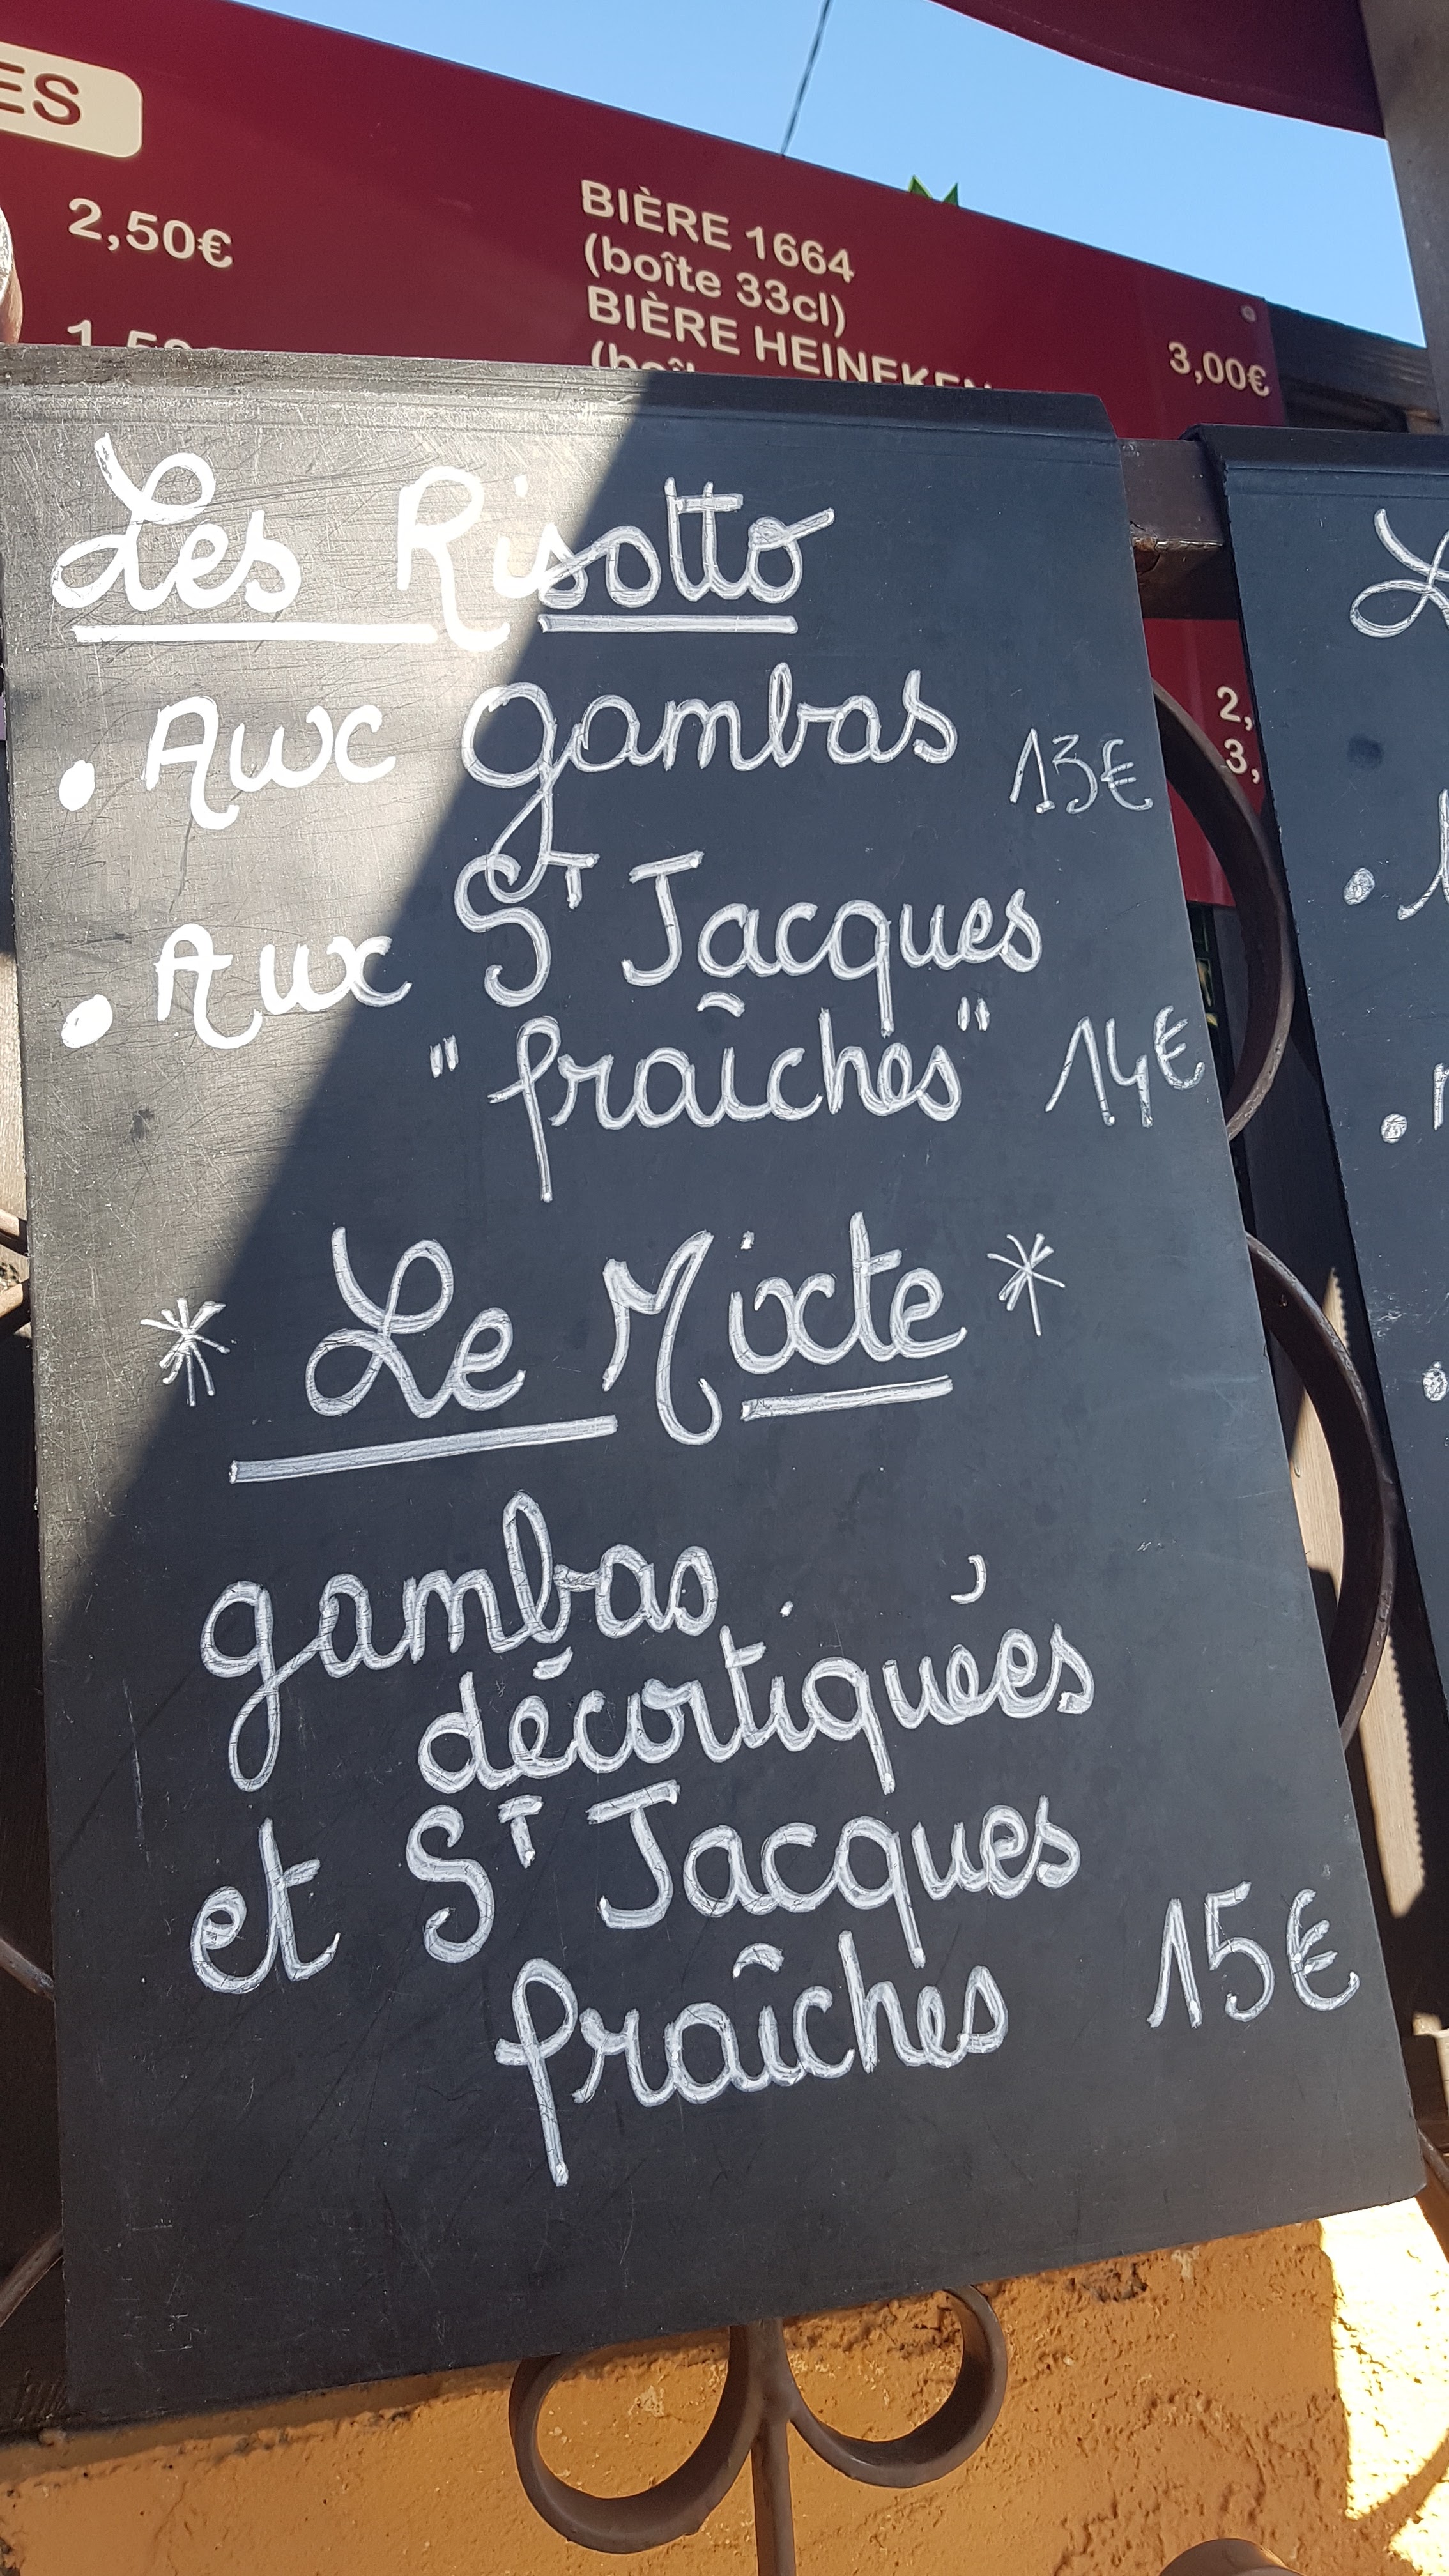 ES
2,50€
BIÈRE 1664
(boîte 33cl)
BIÈRE HEINEKEN
3,00€
Les Risotto
• Aux gambas 13€
• Aux Sᵀ Jacques
"fraîches" 14€
* Le Mixte *
gambas
décortiquées
et Sᵀ Jacques
fraîches 15€
2,
3,